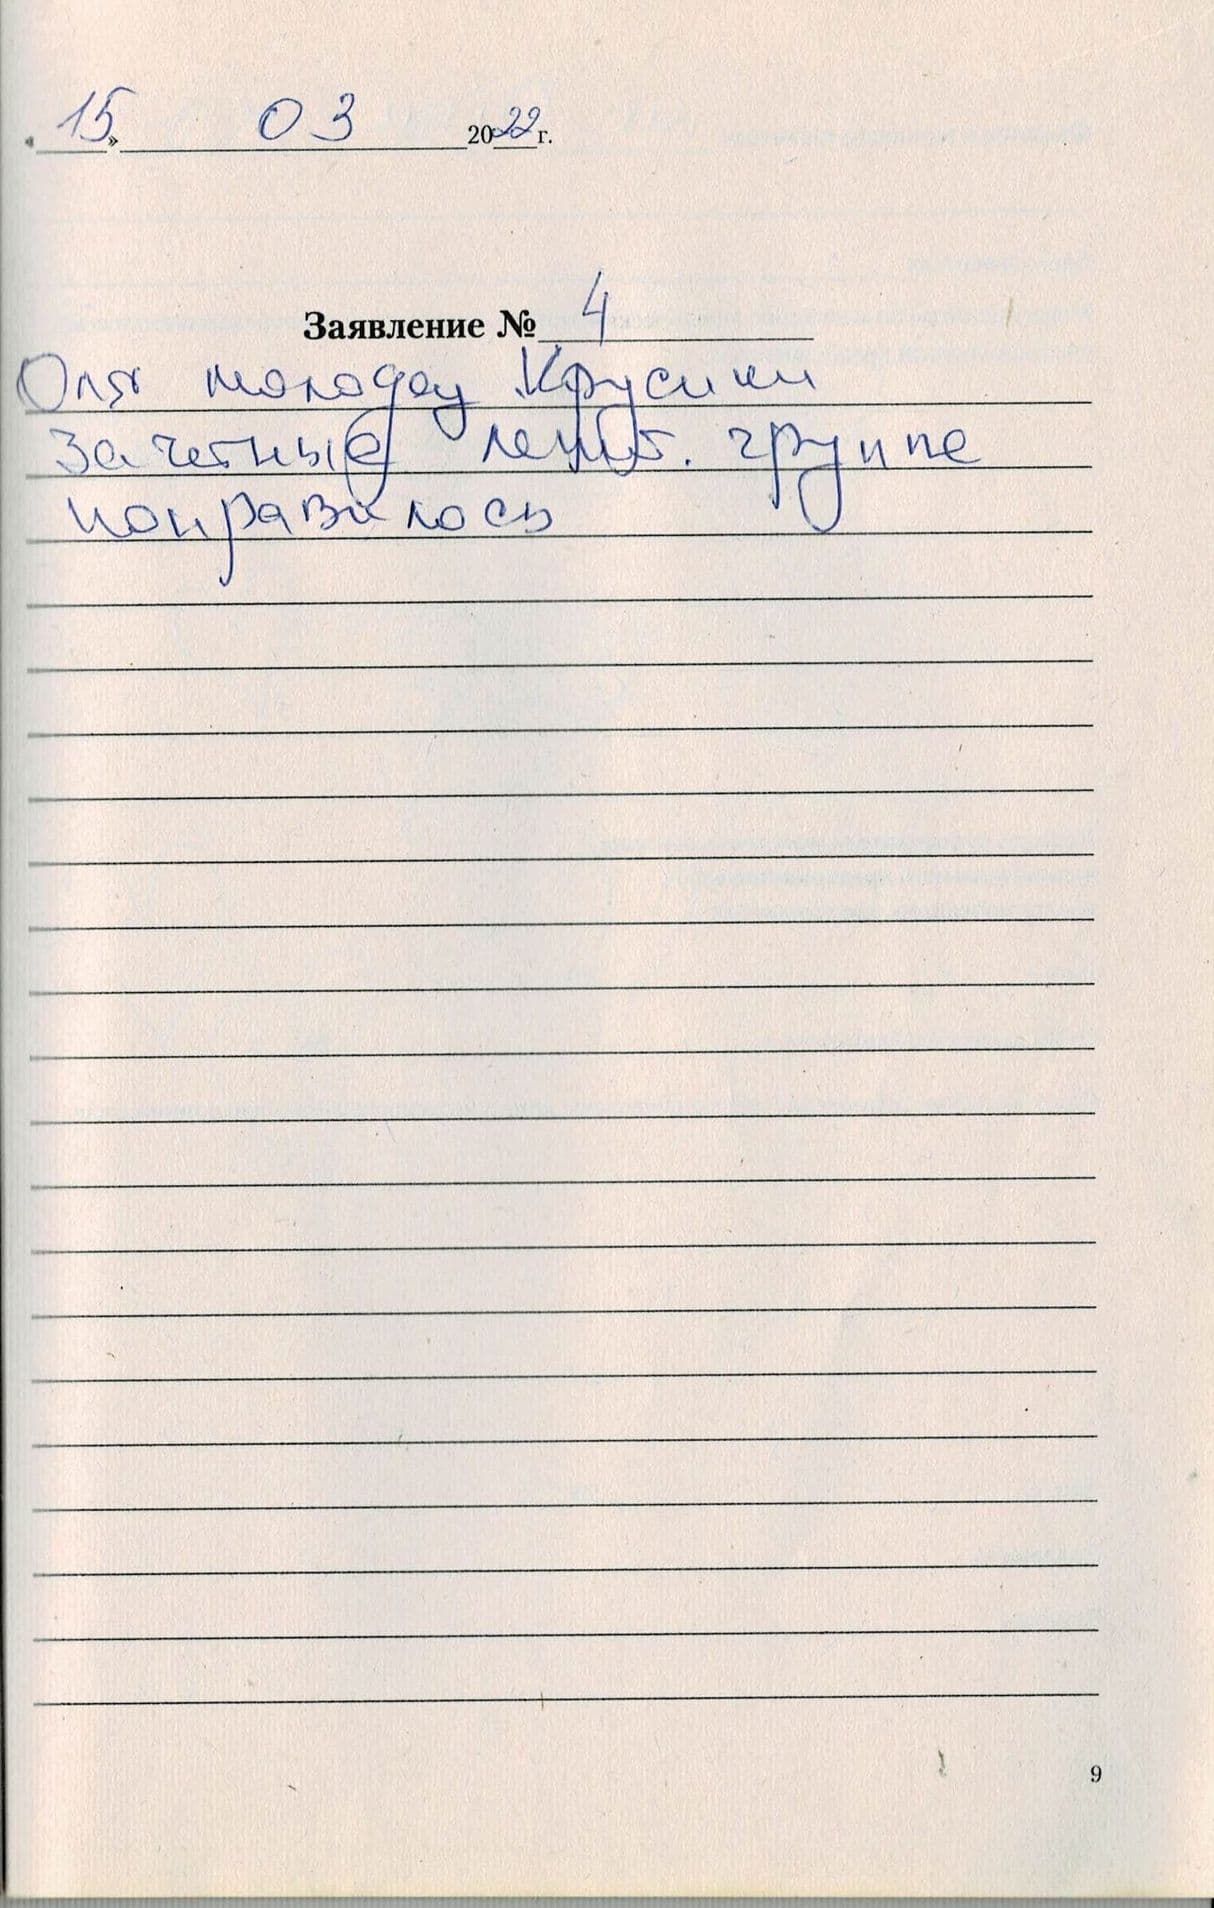 «15» 03 2022 г.
Заявление № 4
Оля молодец Крусики
зачетные группе
понравилось
9